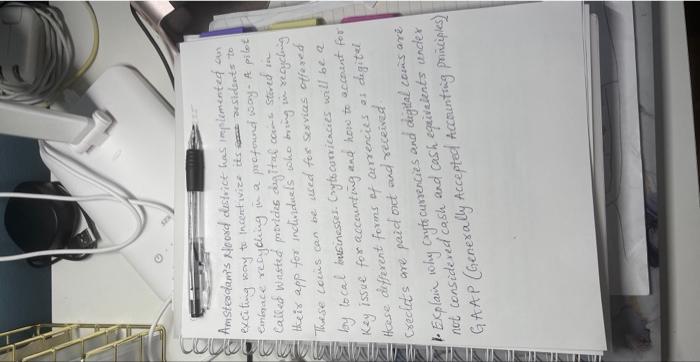 Amsterdam's Noord district has implemented an
exciting way to Incentivize its residents to
embrace recycling in a profound way - A pilot
called Wasted provides digital coins stored in
their app for individuals who bring in recycling
These coins can be used for services offered
by local businesses. Cryptocurrencies will be a
key issue for accounting and how to account for
these different forms of currencies as digital
credits are paid out and received.
1. Explain why Cryptocurrencies and digital coins are
not considered cash and cash equivalents under
GAAP (Generally Accepted Accounting principles)